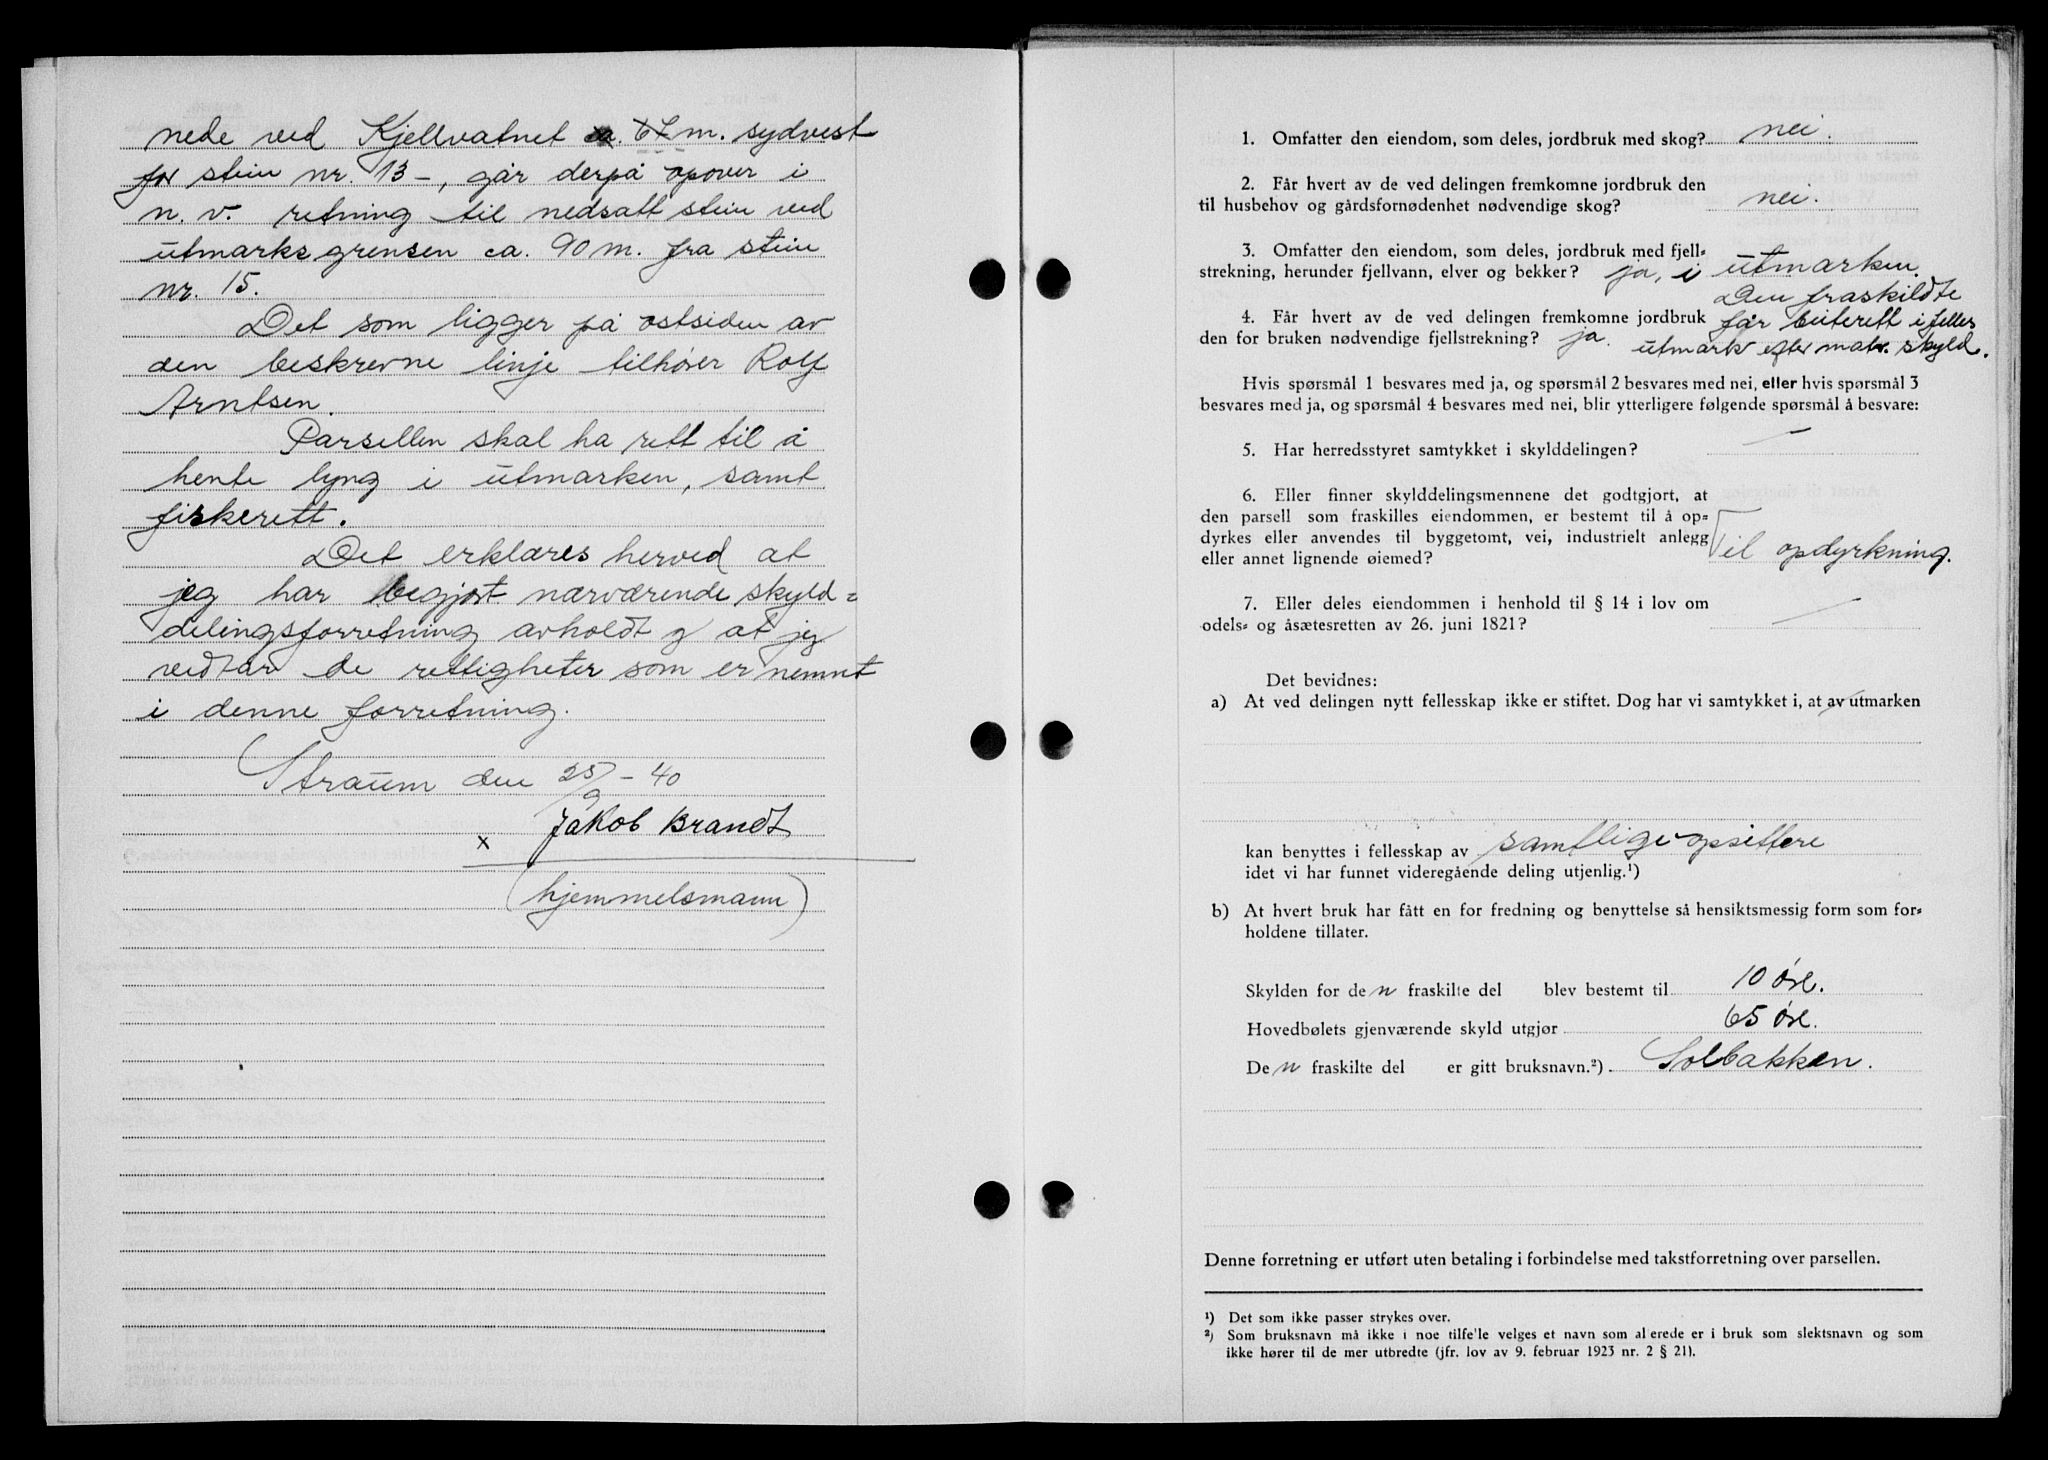 nede ved Kjellvatnet ca. 67 m. sydvest
for stein nr. 13 -, går derpå opover i
n. v. retning til nedsatt stein ved
utmarksgrensen ca. 90 m. fra stein
nr. 15.
Det som ligger på ostsiden av
den beskrevne linje tilhører Rolf
Arntsen.
Parsellen skal ha rett til å
hente lyng i utmarken, samt
fiskerett.
Det erklæres herved at
jeg har begjært nærværende skyld=
delingsforretning avholdt og at jeg
vedtar de rettigheter som er nemnt
i denne forretning.
Straum den 25/9 - 40
x Jakob Brandt
(hjemmelsmann)
1. Omfatter den eiendom, som deles, jordbruk med skog? nei.
2. Får hvert av de ved delingen fremkomne jordbruk den
til husbehov og gårdsfornødenhet nødvendige skog? nei.
3. Omfatter den eiendom, som deles, jordbruk med fjell=
strekning, herunder fjellvann, elver og bekker? ja, i utmarken.
Den fraskildte
4. Får hvert av de ved delingen fremkomne jordbruk får beiterett i felles
den for bruken nødvendige fjellstrekning? ja. utmark efter matr. skyld.
Hvis spørsmål 1 besvares med ja, og spørsmål 2 besvares med nei, eller hvis spørsmål 3
besvares med ja, og spørsmål 4 besvares med nei, blir ytterligere følgende spørsmål å besvare:
5. Har herredsstyret samtykket i skylddelingen? —
6. Eller finner skylddelingsmennene det godtgjort, at
den parsell som fraskilles eiendommen, er bestemt til å op=
dyrkes eller anvendes til byggetomt, vei, industrielt anlegg
eller annet lignende øiemed? Til opdyrkning.
7. Eller deles eiendommen i henhold til § 14 i lov om
odels= og åsætesretten av 26. juni 1821? —
Det bevidnes:
a) At ved delingen nytt fellesskap ikke er stiftet. Dog har vi samtykket i, at av utmarken
kan benyttes i fellesskap av samtlige opsittere
idet vi har funnet videregående deling utjenlig.¹)
b) At hvert bruk har fått en for fredning og benyttelse så hensiktsmessig form som for=
holdene tillater.
Skylden for den fraskilte del blev bestemt til 10 øre.
Hovedbølets gjenværende skyld utgjør 65 øre.
Den fraskilte del er gitt bruksnavn.²) Solbakken.
Denne forretning er utført uten betaling i forbindelse med takstforretning over parsellen.
¹) Det som ikke passer strykes over.
²) Som bruksnavn må ikke i noe tilfe'le velges et navn som al erede er i bruk som slektsnavn og som
ikke hører til de mer utbredte (jfr. lov av 9. februar 1923 nr. 2 § 21).